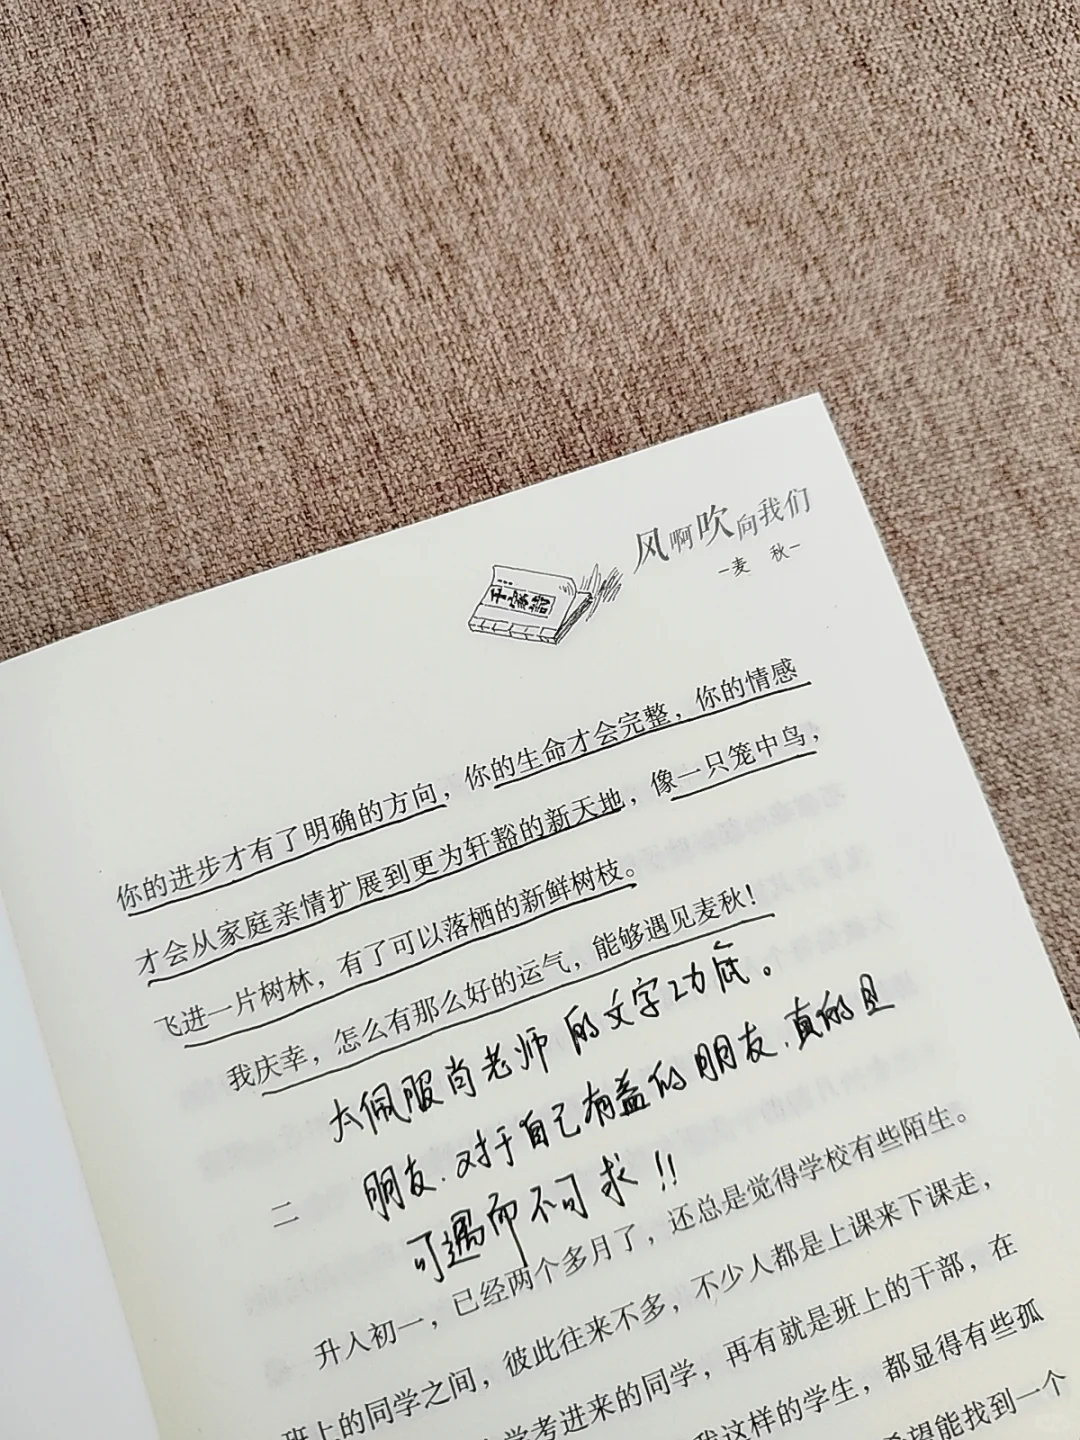 风啊吹向我们
-麦 秋-
千家诗
你的进步才有了明确的方向，你的生命才会完整，你的情感
才会从家庭亲情扩展到更为轩豁的新天地，像一只笼中鸟，
飞进一片树林，有了可以落栖的新鲜树枝。
我庆幸，怎么有那么好的运气，能够遇见麦秋！
太佩服肖老师的文字功底。
朋友.对于自己有益的朋友.真的是
可遇而不可求!!
二
升入初一，已经两个多月了，还总是觉得学校有些陌生。
班上的同学之间，彼此往来不多，不少人都是上课来下课走，
学考进来的同学，再有就是班上的干部，在
我这样的学生，都显得有些孤
希望能找到一个